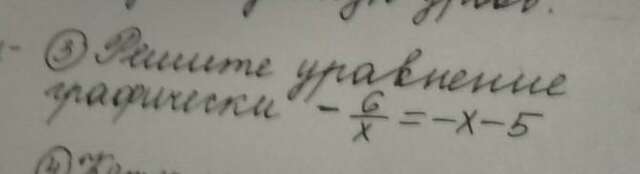 ③ Решите уравнение
графически - 6/x = -x - 5